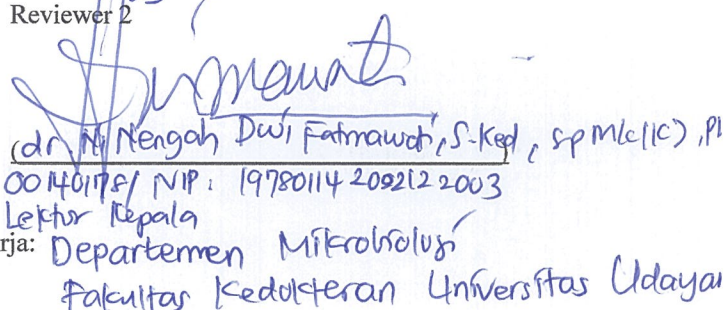 Reviewer 2
(dr. Ni Nengah Dwi Fatmawati, S.Ked, SpMK(K), Ph
00140178/ NIP: 19780114 200212 2003
Lektor Kepala
rja: Departemen Mikrobiologi
Fakultas Kedokteran Universitas Udayan